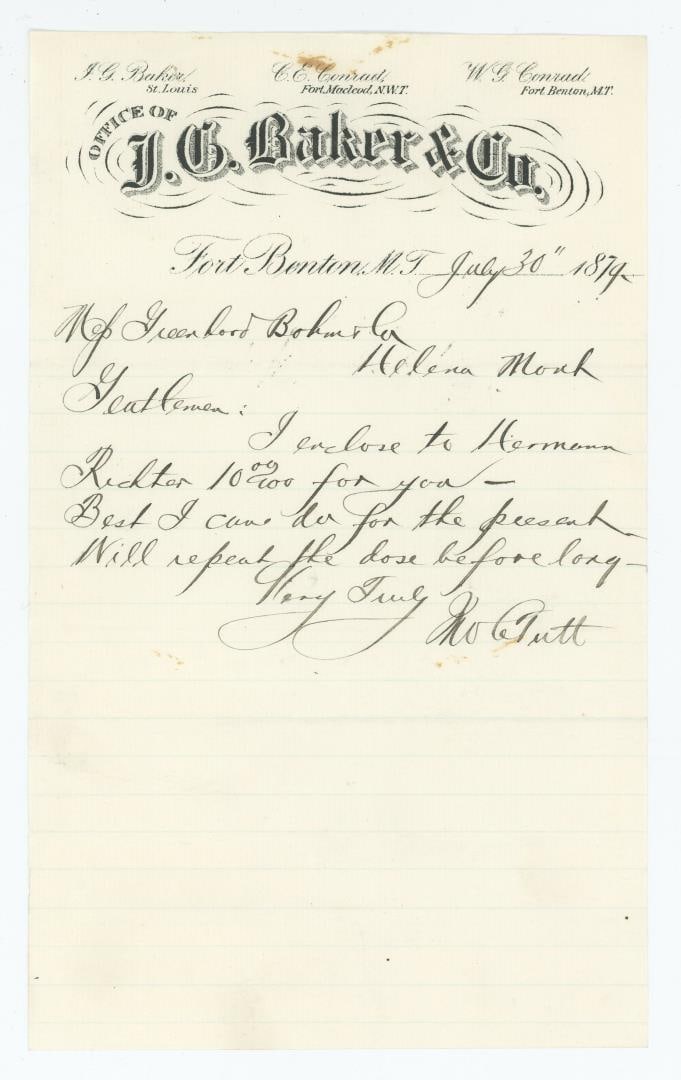 J. G. Baker, C. E. Conrad, W. G. Conrad,
St. Louis Fort Macleod, N.W.T. Fort Benton, M.T.
OFFICE OF
J. G. Baker & Co.
Fort Benton, M.T. July 30" 1879
Mess Greenhood Bohm & Co
Helena Mont
Gentlemen:
I enclose to Hermann
Richter 10 00/100 for you —
Best I can do for the present
Will repeat the dose before long —
Very Truly
Jno C Tutt